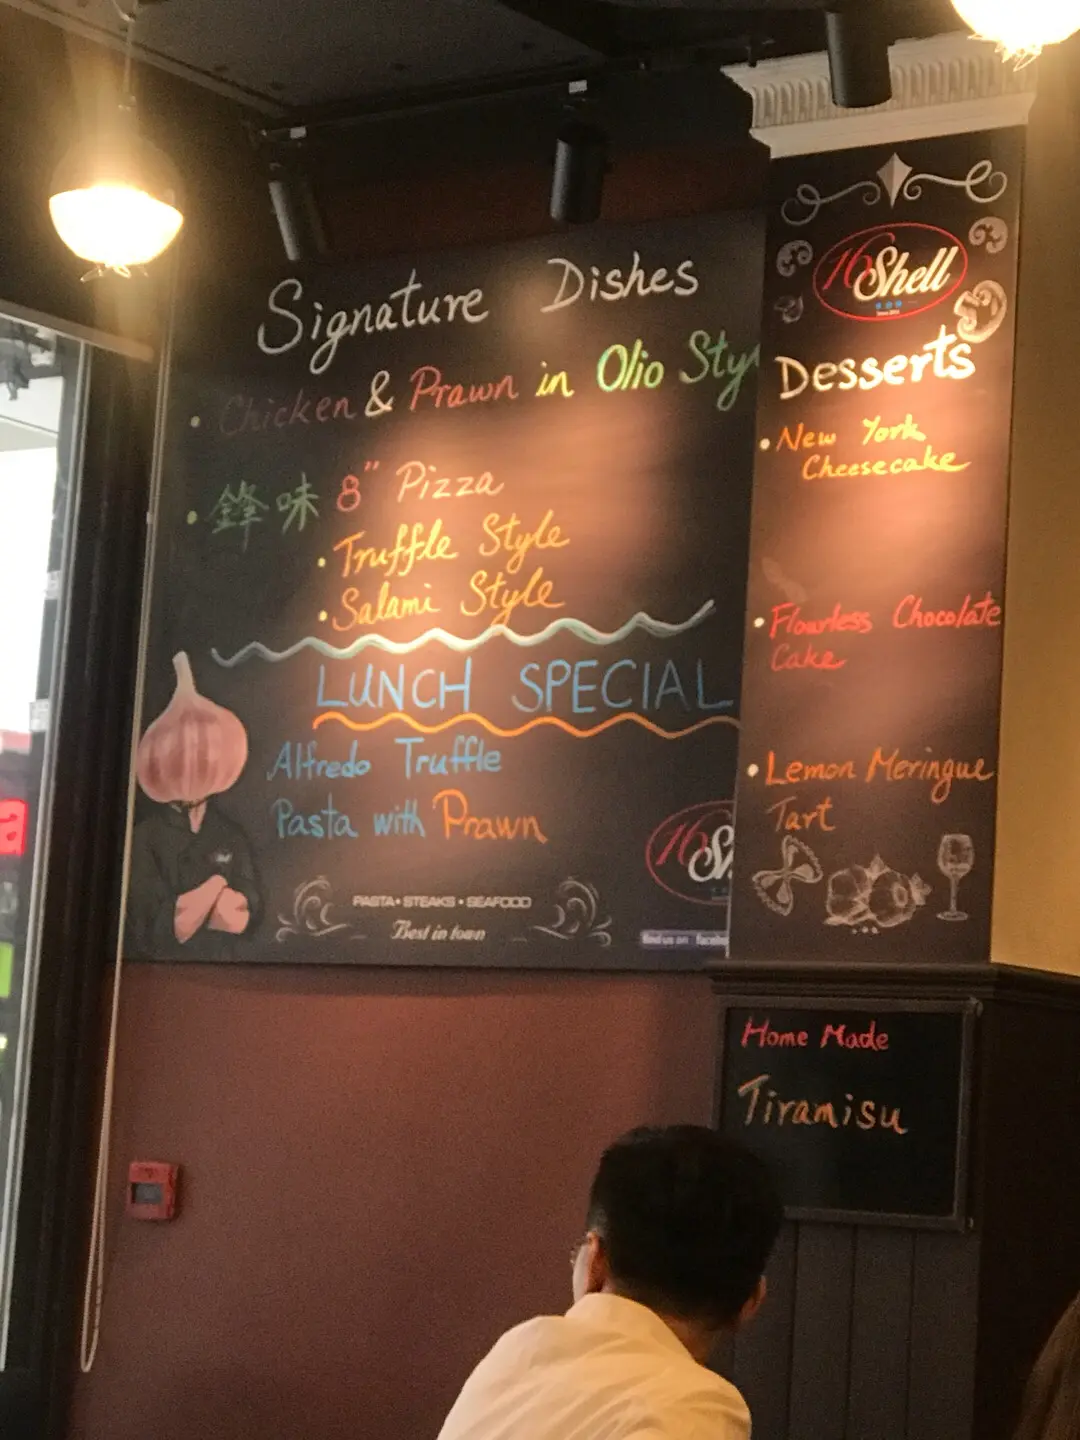 Signature Dishes
• Chicken & Prawn in Olio Sty
• 鋒味 8" Pizza
• Truffle Style
• Salami Style
LUNCH SPECIAL
Alfredo Truffle
Pasta with Prawn
PASTA • STEAKS • SEAFOOD
Best in town
16 S
find us on facebo
16 Shell
Desserts
• New York
Cheesecake
• Flourless Chocolate
Cake
• Lemon Meringue
Tart
Home Made
Tiramisu
a